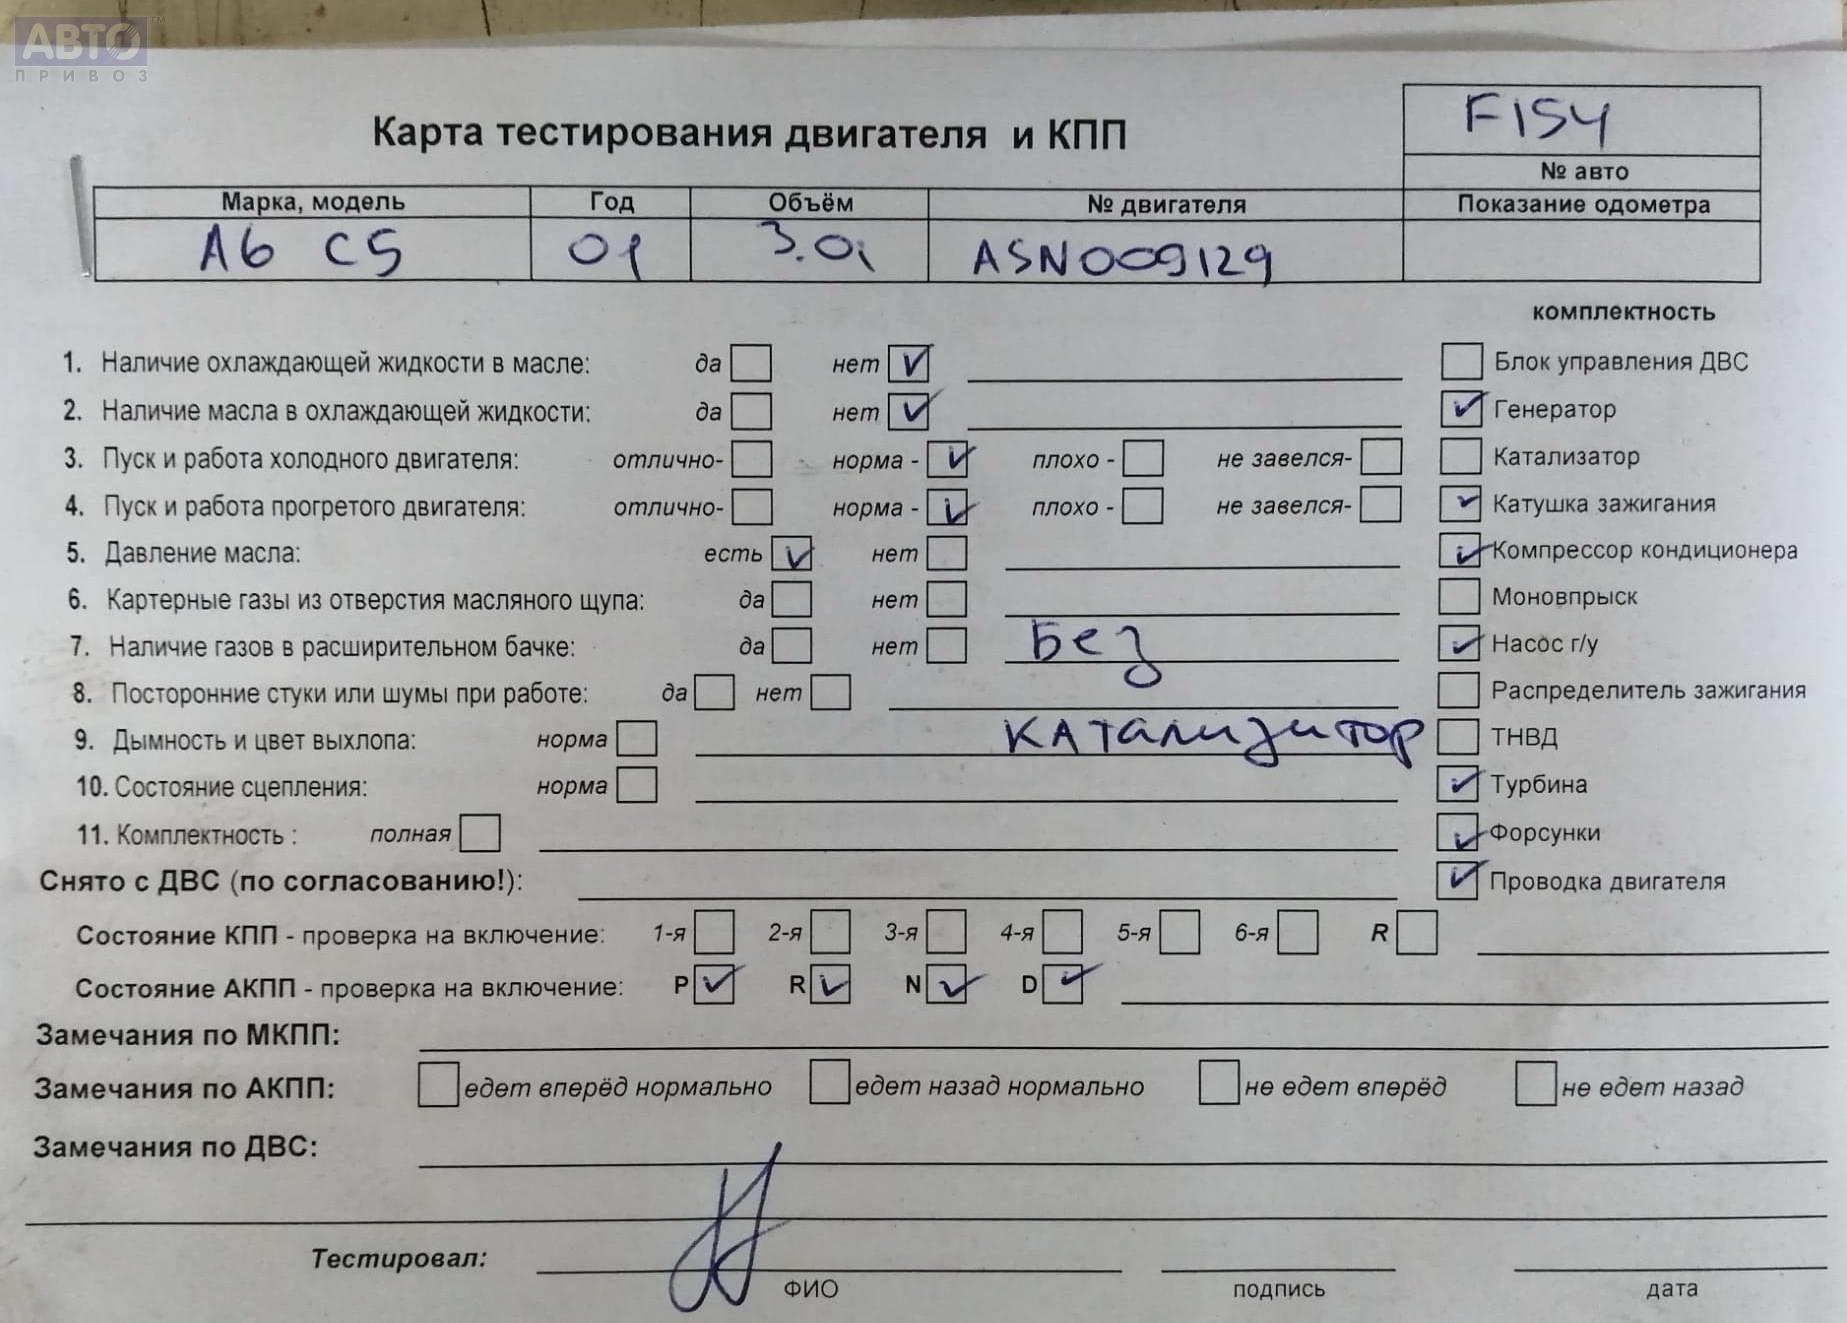 АВТО
ПРИВОЗ
F154
Карта тестирования двигателя и КПП
№ авто
Марка, модель Год Объём № двигателя Показание одометра
A6 C5 01 3.0i ASN009129
комплектность
1. Наличие охлаждающей жидкости в масле: да нет Блок управления ДВС
2. Наличие масла в охлаждающей жидкости: да нет Генератор
3. Пуск и работа холодного двигателя: отлично- норма - плохо - не завелся- Катализатор
4. Пуск и работа прогретого двигателя: отлично- норма - плохо - не завелся- Катушка зажигания
5. Давление масла: есть нет Компрессор кондиционера
6. Картерные газы из отверстия масляного щупа: да нет Моновпрыск
7. Наличие газов в расширительном бачке: да нет Без Насос г/у
8. Посторонние стуки или шумы при работе: да нет Распределитель зажигания
9. Дымность и цвет выхлопа: норма катализитор ТНВД
10. Состояние сцепления: норма Турбина
11. Комплектность : полная Форсунки
Снято с ДВС (по согласованию!): Проводка двигателя
Состояние КПП - проверка на включение: 1-я 2-я 3-я 4-я 5-я 6-я R
Состояние АКПП - проверка на включение: P R N D
Замечания по МКПП:
Замечания по АКПП: едет вперёд нормально едет назад нормально не едет вперёд не едет назад
Замечания по ДВС:
Тестировал:
ФИО подпись дата